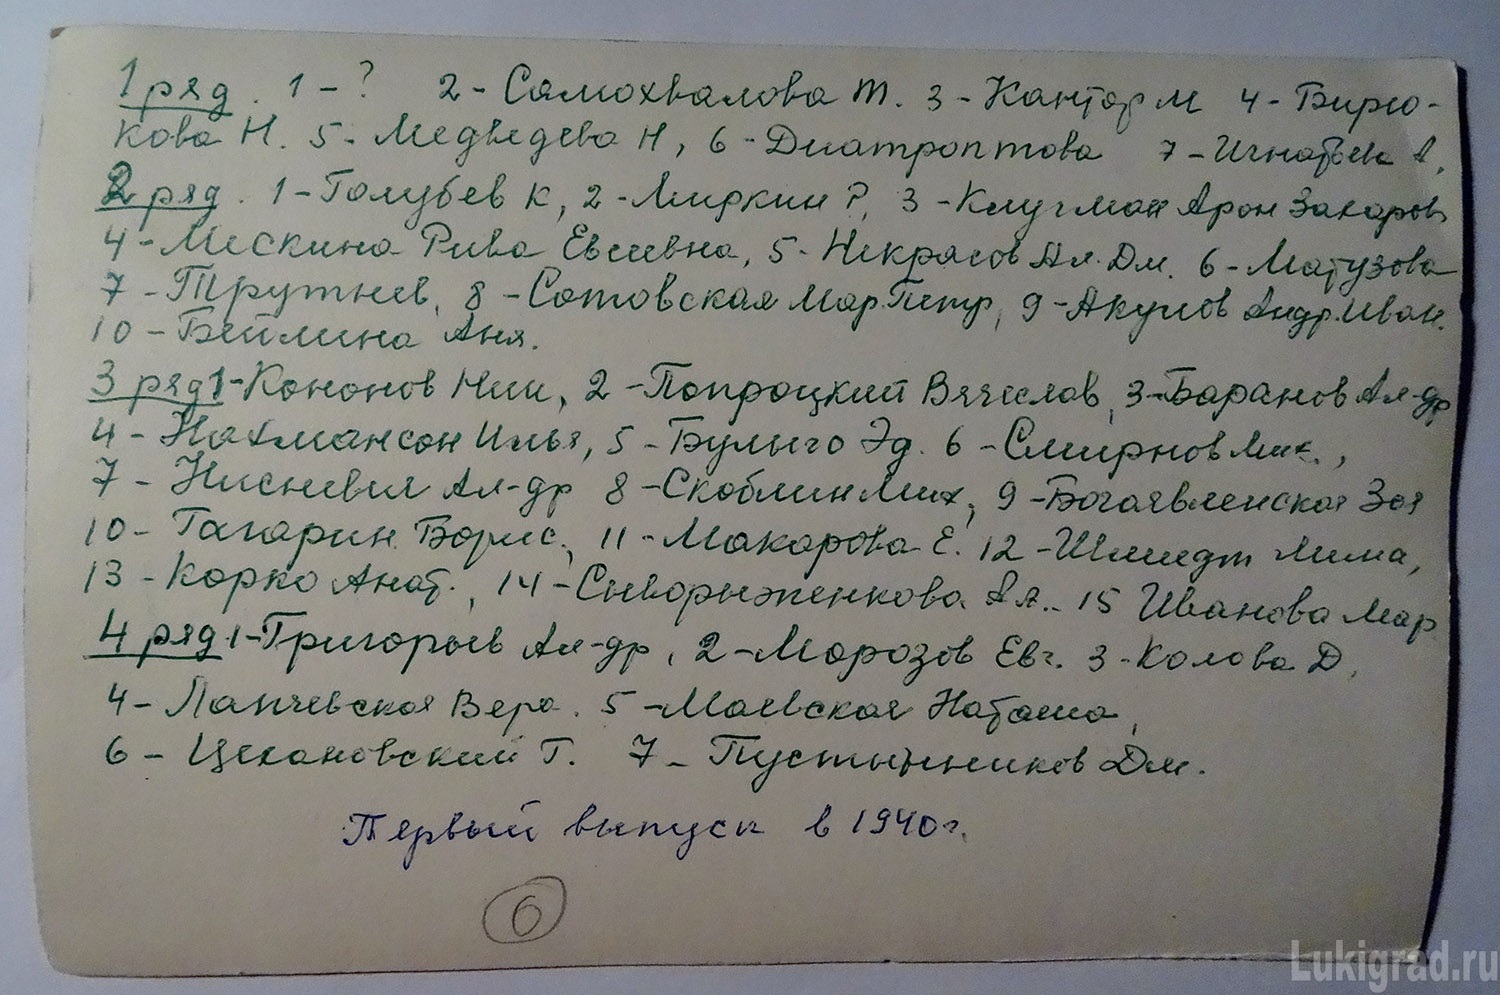 1 ряд. 1 - ? 2 - Самохвалова Т. 3 - Кантор М 4 - Бирю-
кова Н. 5 - Медведева Н, 6 - Диатроптова 7 - Игнатьева А,
2 ряд. 1 - Голубев К, 2 - Миркин Р, 3 - Клугман Арон Захаров
4 - Мескина Рива Евсеевна, 5 - Некрасов Ал. Дм. 6 - Матузова
7 - Трутнев, 8 - Сотовская Мар Петр, 9 - Акулов Андр. Иван.
10 - Бейлина Аня.
3 ряд 1 - Кононов Ник, 2 - Попроцкий Вячеслав, 3 - Баранов Ал-др
4 - Нахмансон Илья, 5 - Булыго Эд. 6 - Смирнов Мих.,
7 - Нисневич Ал-др 8 - Скоблин Мих, 9 - Богоявленская Зоя
10 - Гагарин Борис, 11 - Макарова Е. 12 - Шмидт Мима,
13 - Корко Анат., 14 - Сыворыженкова Ал. 15 Иванова Мар
4 ряд 1 - Григорьев Ал-др, 2 - Морозов Евг. 3 - Колова Д,
4 - Лапчевская Вера. 5 - Маевская Наташа,
6 - Цехановский Г. 7 - Пустынников Дм.
Первый выпуск в 1940 г.
6
Lukigrad.ru